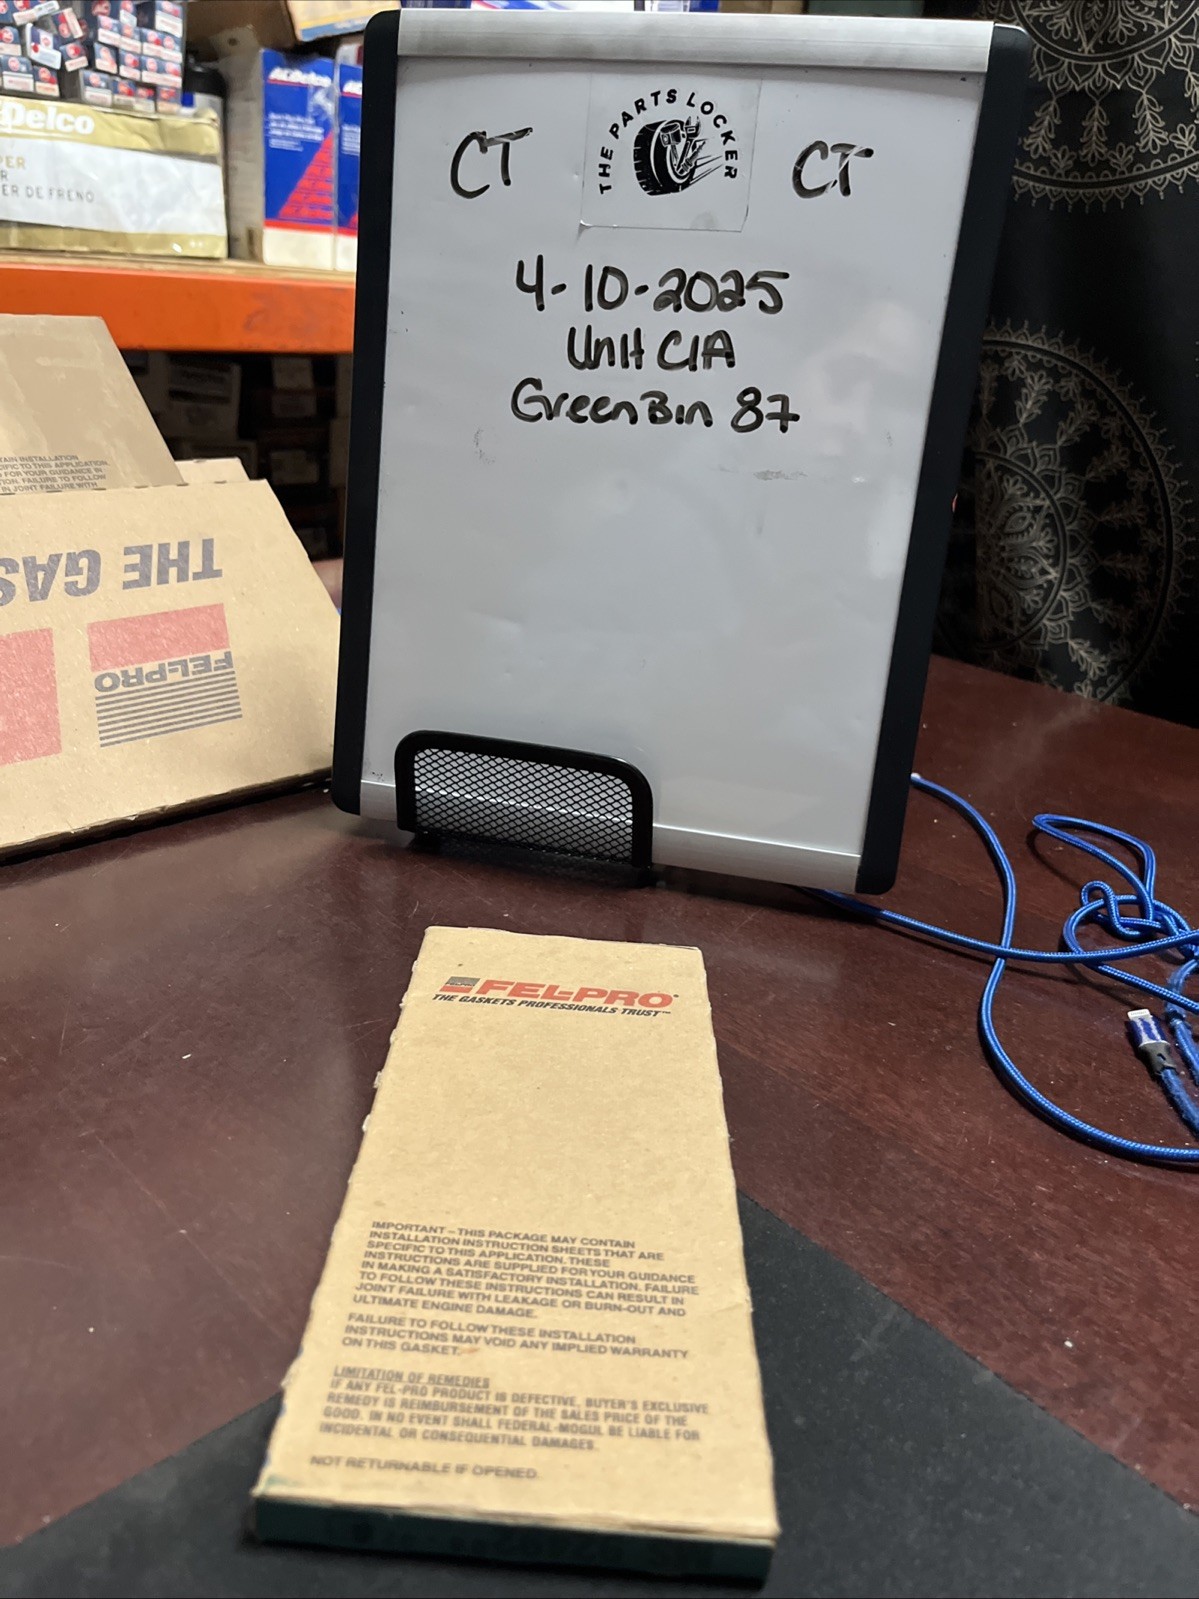 ACDelco
Delco
PER
R
ER DE FRENO
THE PARTS LOCKER
CT CT
4-10-2025
Unit C1A
Green Bin 87
TAIN INSTALLATION
CIFIC TO THIS APPLICATION.
FOR YOUR GUIDANCE IN
TION. FAILURE TO FOLLOW
IN JOINT FAILURE WITH
THE GAS
FEL-PRO
FEL-PRO®
THE GASKETS PROFESSIONALS TRUST™
IMPORTANT – THIS PACKAGE MAY CONTAIN
INSTALLATION INSTRUCTION SHEETS THAT ARE
SPECIFIC TO THIS APPLICATION. THESE
INSTRUCTIONS ARE SUPPLIED FOR YOUR GUIDANCE
IN MAKING A SATISFACTORY INSTALLATION. FAILURE
TO FOLLOW THESE INSTRUCTIONS CAN RESULT IN
JOINT FAILURE WITH LEAKAGE OR BURN-OUT AND
ULTIMATE ENGINE DAMAGE.
FAILURE TO FOLLOW THESE INSTALLATION
INSTRUCTIONS MAY VOID ANY IMPLIED WARRANTY
ON THIS GASKET.
LIMITATION OF REMEDIES
IF ANY FEL-PRO PRODUCT IS DEFECTIVE, BUYER'S EXCLUSIVE
REMEDY IS REIMBURSEMENT OF THE SALES PRICE OF THE
GOOD. IN NO EVENT SHALL FEDERAL-MOGUL BE LIABLE FOR
INCIDENTAL OR CONSEQUENTIAL DAMAGES.
NOT RETURNABLE IF OPENED.